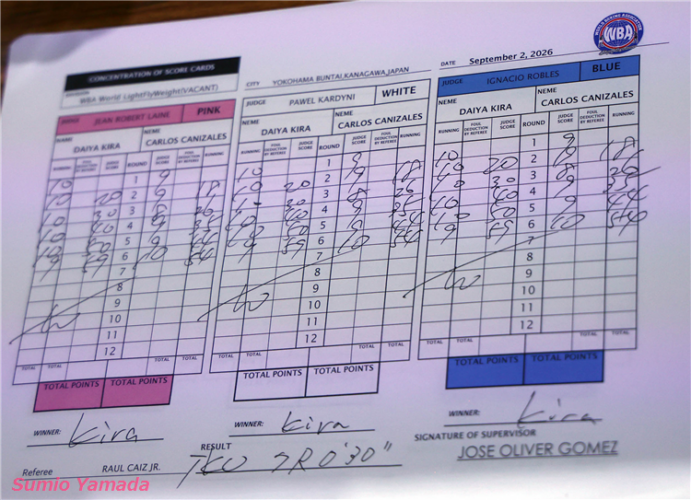 WBA
CONCENTRATION OF SCORE CARDS
WBA World LightFlyWeight(VACANT)
CITY YOKOHAMA BUNTAI,KANAGAWA,JAPAN
DATE September 2, 2026
JUDGE JEAN ROBERT LAINE PINK
NAME NEME
DAIYA KIRA CARLOS CANIZALES
RUNNING FOUL DEDUCTION BY REFEREE JUDGE SCORE ROUND JUDGE SCORE FOUL DEDUCTION BY REFEREE RUNNING
10 1 9
10 20 2 9 18
10 30 3 8 26
10 40 4 9 35
10 50 5 9 44
9 59 6 10 54
7
8
9
10
11
12
TOTAL TOTAL
TOTAL POINTS TOTAL POINTS
WINNER: Kira
JUDGE PAWEL KARDYNI WHITE
NEME NEME
DAIYA KIRA CARLOS CANIZALES
RUNNING FOUL DEDUCTION BY REFEREE JUDGE SCORE ROUND JUDGE SCORE FOUL DEDUCTION BY REFEREE RUNNING
10 1 9
10 20 2 9 18
10 30 3 8 26
10 40 4 9 35
10 50 5 9 44
9 59 6 10 54
7
8
9
10
11
12
TOTAL TOTAL
TOTAL POINTS TOTAL POINTS
WINNER: Kira
JUDGE IGNACIO ROBLES BLUE
NEME NEME
DAIYA KIRA CARLOS CANIZALES
RUNNING FOUL DEDUCTION BY REFEREE JUDGE SCORE ROUND JUDGE SCORE FOUL DEDUCTION BY REFEREE RUNNING
10 1 9
10 20 2 9 18
10 30 3 8 26
10 40 4 9 35
10 50 5 9 44
9 59 6 10 54
7
8
9
10
11
12
TOTAL TOTAL
TOTAL POINTS TOTAL POINTS
WINNER: Kira
Referee RAUL CAIZ JR.
RESULT TKO 7R 0'30"
SIGNATURE OF SUPERVISOR
JOSE OLIVER GOMEZ
Sumio Yamada